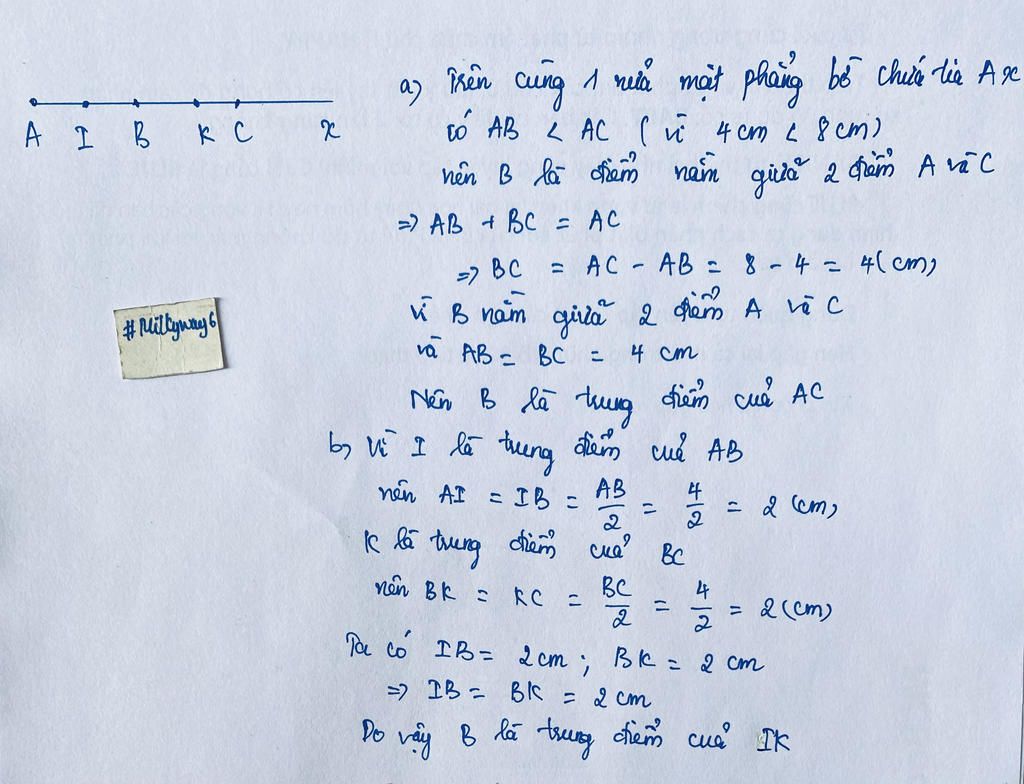 A I B K C x
a) Trên cùng 1 nửa mặt phẳng bờ chứa tia Ax
có AB < AC ( vì 4cm < 8cm)
nên B là điểm nằm giữa 2 điểm A và C
=> AB + BC = AC
=> BC = AC - AB = 8 - 4 = 4(cm)
Vì B nằm giữa 2 điểm A và C
và AB = BC = 4 cm
Nên B là trung điểm của AC
#Milkyway6
b) Vì I là trung điểm của AB
nên AI = IB = AB/2 = 4/2 = 2 (cm)
K là trung điểm của BC
nên BK = KC = BC/2 = 4/2 = 2 (cm)
Ta có IB = 2cm ; BK = 2 cm
=> IB = BK = 2 cm
Do vậy B là trung điểm của IK